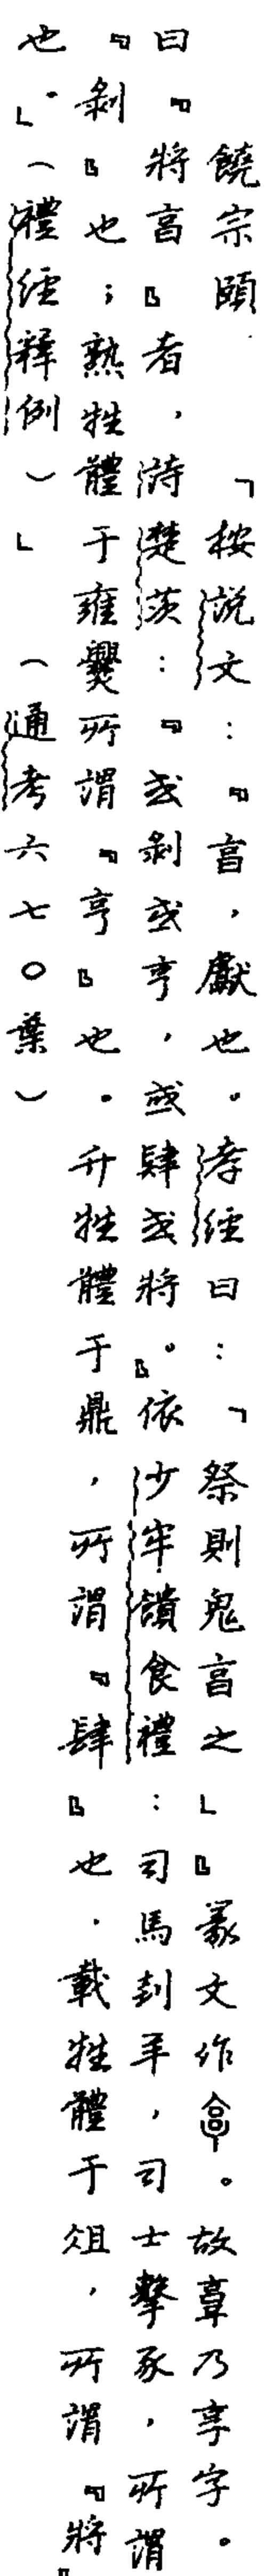 饒宗頤 「按說文:『亯,獻也。孝經曰:「祭則鬼亯之」』篆文作。故乃享字。
曰『將亯』者,詩楚茨:『或剝或亨,或肆或將。』依少牢饋食禮:司馬刲羊,司士擊豕,所謂
『剝』也;熟牲體于雍爨所謂『亨』也.升牲體于鼎,所謂『肆』也.載牲體于俎,所謂『將』
也。」(禮經釋例)」(通考六七〇葉)